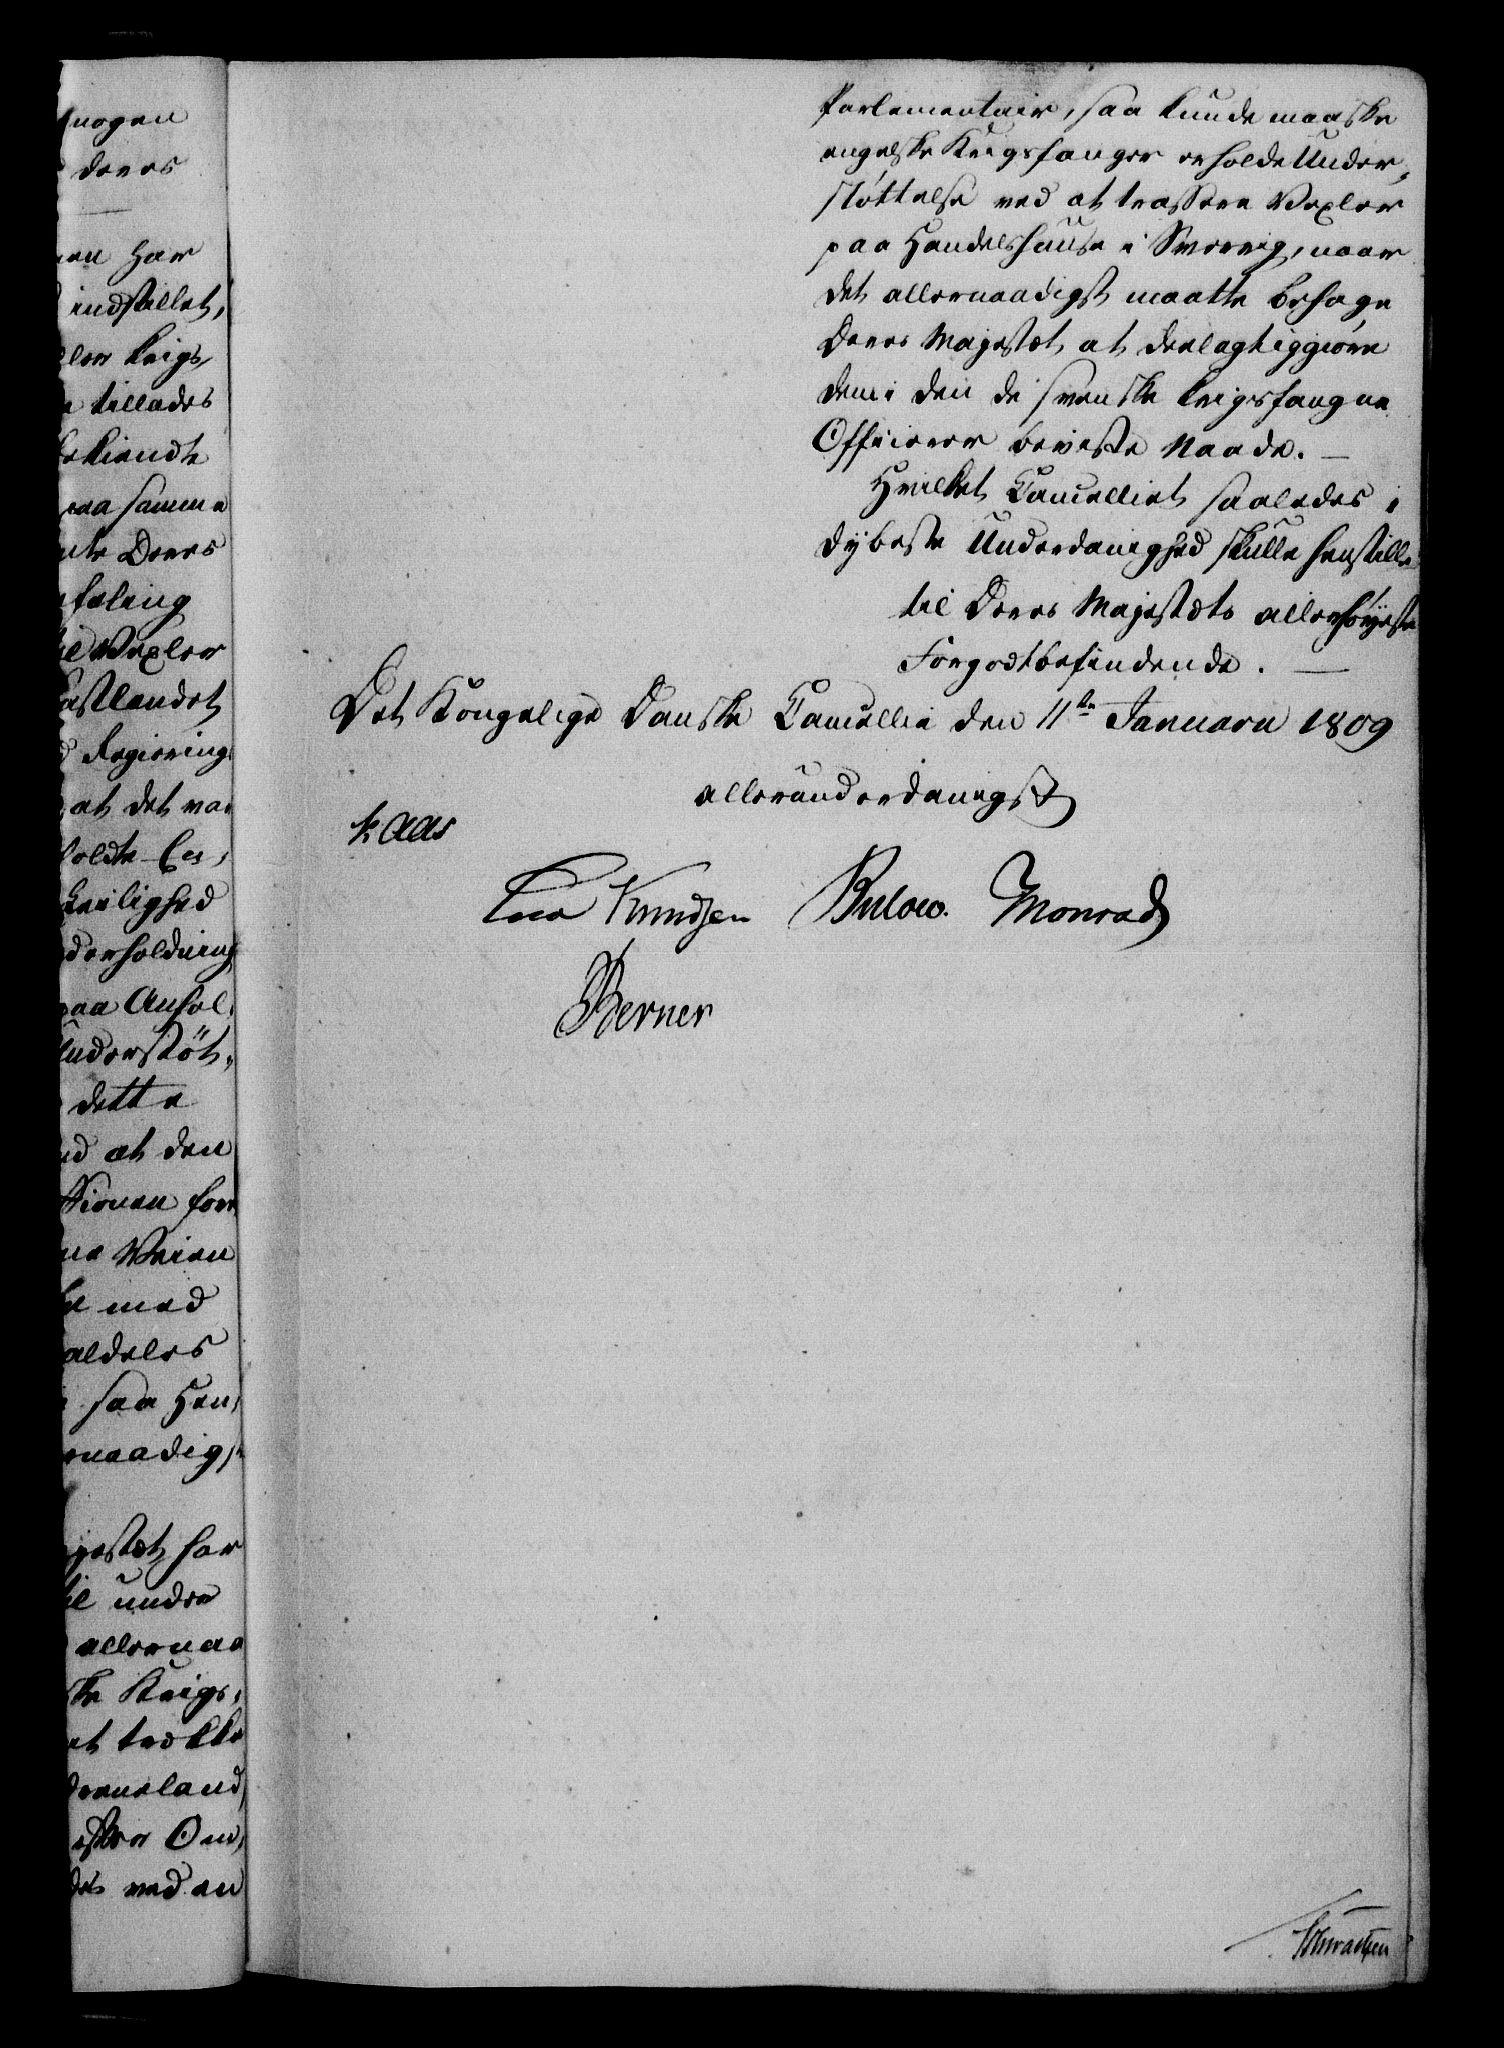 nogen
deres
nen har
indstillet,
ller krigs,
tillades
bekiendte
paa samme
nte Deres
faling
til Vexler
astlandet
Regierings
at det var
holdte En,
keilighed
derholdning
paa Anhol,
Understøt,
dette
nd at den
ssionen for
ne Veien
ke med
aldeles
saa Hen,
rnaadigst
jestæt har
til under
allernaa
ske Krigs,
at trække
dreneland
Om,
des ved en
Parlementair, saa kunde maaske
engelske Krigsfanger erholde Under,
støttelse ved at trassere Vexler
paa Handelshuse i Sverrig, naar
det allernaadigst maatte behage
Deres Majestæt at deelagtiggiøre
dem i den de svenske krigsfangne
Officierer beviste Naade. —
Hvilket Cancelliet saaledes i
dybeste Underdanighed skulle henstille
til Deres Majestæts allerhøyeste
Forgodtbefindende. —
Det Kongelige Danske Cancellie den 11te Januarii 1809
allerunderdanigst
Kaas
Knudsen Bulow. Monrad
Berner